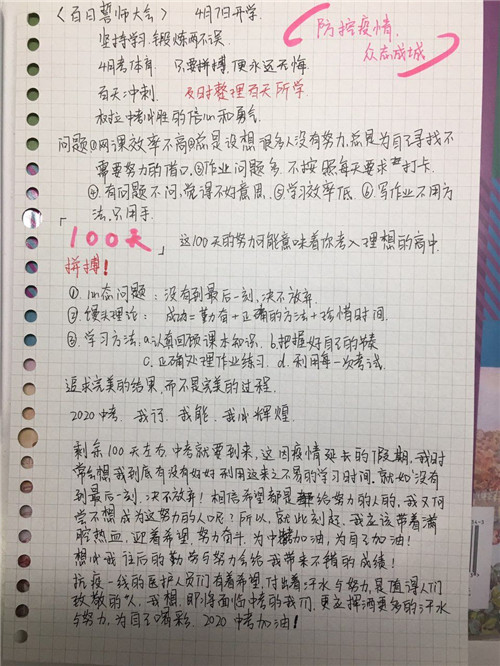 《百日誓师大会》 4月7日开学
防控疫情,
众志成城
坚持学习,锻炼两不误
4月考体育. 只要拼搏,便永远无悔
百天冲刺. 及时整理百天所学
树立中考必胜的信心和勇气
问题①网课效率不高②总是设想很多人没有努力,总是为自己寻找不
需要努力的借口.③作业问题多.不按照每天要求打卡.
④.有问题不问,觉得不好意思.⑤学习效率低.⑥.写作业不用方
法,只用手.
「100天」 这100天的努力可能意味着你考入理想的高中.
拼搏!
①.心态问题:没有到最后一刻,决不放弃.
②.馒头理论: 成功=勤奋+正确的方法+珍惜时间.
③.学习方法.a.认真回顾课本知识. b.把握好自己的节奏
c.正确处理作业练习. d.利用每一次考试.
追求完美的结果,而不是完美的过程.
2020中考. 我行.我能.我必辉煌.
剩余100天左右,中考就要到来,这因疫情延长的假期,我时
常会想,我到底有没有好好利用这来之不易的学习时间.就如"没有
到最后一刻,决不放弃!相信希望都是给努力的人的,我又何
尝不想成为这努力的人呢?所以,就此刻起.我应该带着满
腔热血,迎着希望,努力奋斗,为中考加油,为自己加油!
想必我往后的勤劳与努力会给我带来不错的成绩!
抗疫一线的医护人员们有着希望,付出着汗水与努力,是值得人们
致敬的人,我想.即将面临中考的我们,更应挥洒更多的汗水
与努力,为自己喝彩. 2020中考加油!